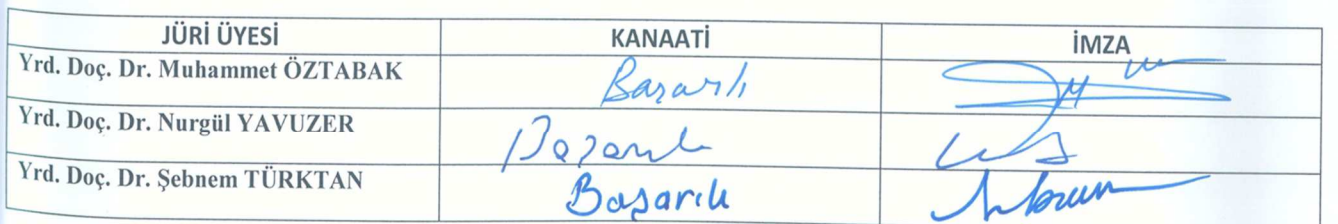 JÜRİ ÜYESİ KANAATİ İMZA
Yrd. Doç. Dr. Muhammet ÖZTABAK Başarılı
Yrd. Doç. Dr. Nurgül YAVUZER Başarılı
Yrd. Doç. Dr. Şebnem TÜRKTAN Başarılı